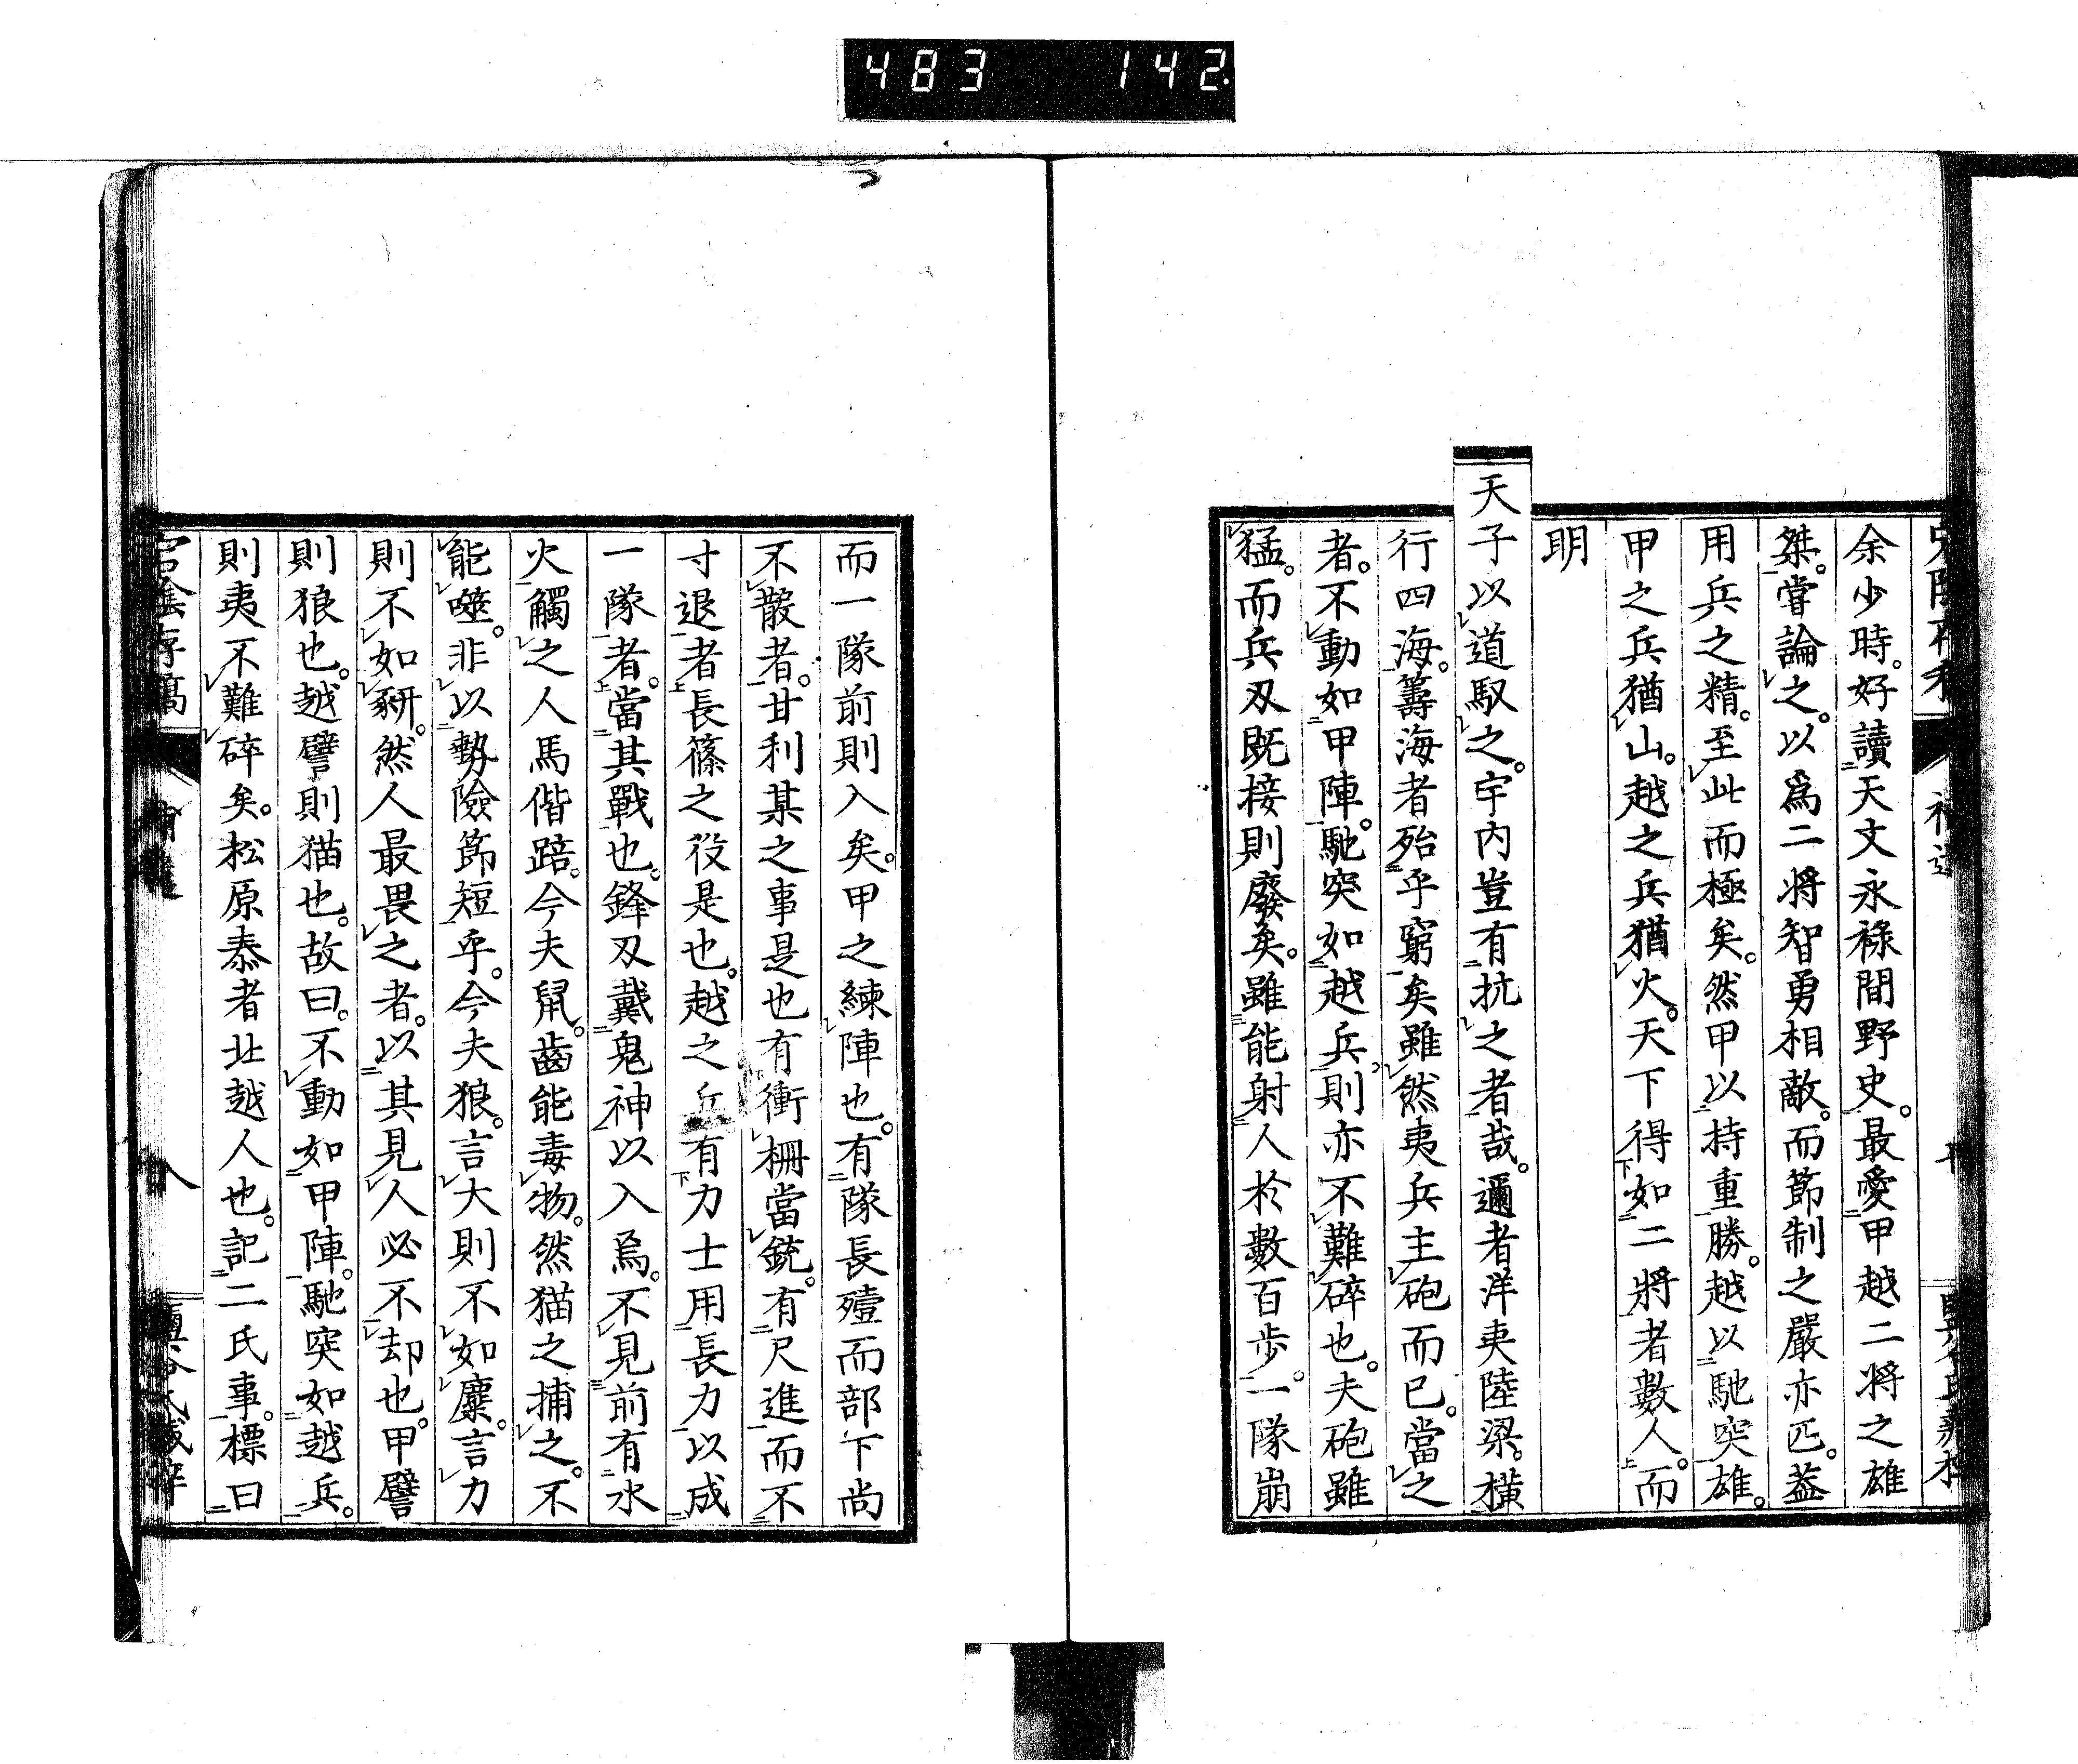 483 142
余少時。好讀天文永祿間野史。最愛甲越二將之雄
桀。嘗論之。以爲二將智勇相敵。而節制之嚴亦匹。葢
用兵之精。至此而極矣。然甲以持重勝。越以馳突雄。
甲之兵猶山。越之兵猶火。天下得如二將者數人。而
明
天子以道馭之。宇內豈有抗之者哉。邇者洋夷陸梁。橫
行四海。籌海者殆乎窮矣雖然夷兵主砲而已。當之
者。不動如甲陣。馳突如越兵。則亦不難碎也。夫砲雖
猛。而兵刃既接則廢矣。雖能射人於數百步。一隊崩
而一隊前則入矣。甲之練陣也。有隊長殪而部下尚
不散者。甘利某之事是也有衝柵當銃。有尺進而不
寸退者長篠之役是也。越之兵有力士用長力以成
一隊者。當其戰也。鋒刃戴鬼神以入焉。不見前有水
火觸之人馬偕踣。今夫鼠。齒能毒物。然猫之捕之。不
能噬。非以勢險節短乎。今夫狼。言大則不如麋。言力
則不如豣。然人最畏之者。以其見人必不却也。甲譬
則狼也。越譬則猫也。故曰。不動如甲陣。馳突如越兵。
則夷不難碎矣。松原泰者北越人也。記二氏事。標曰
宕陰存稿 補遺 八